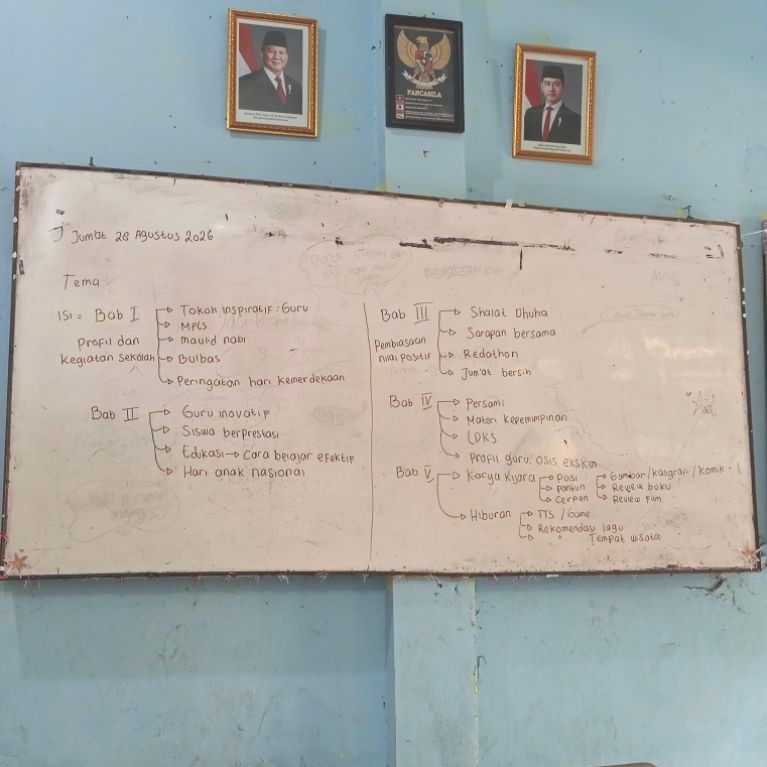 PANCASILA
Jumat 28 Agustus 2026
Tema :
ISI = Bab I
Profil dan
kegiatan sekolah
Tokoh inspiratif : Guru
MPLS
maulid nabi
Bulbas
Peringatan hari kemerdekaan
Bab II
Guru inovatif
Siswa berprestasi
Edukasi → Cara belajar efektif
Hari anak nasional
Bab III
Pembiasaan
nilai positif
Shalat Dhuha
Sarapan bersama
Redathon
Jum'at bersih
Bab IV
Persami
Materi kepemimpinan
LDKS
Profil guru, osis ekskul
Bab V
Karya Kijara
Puisi
Pantun
Cerpen
Gambar / kaligrafi / komik
Review buku
Review Film
Hiburan
TTS / Game
Rekomendasi lagu
Tempat wisata